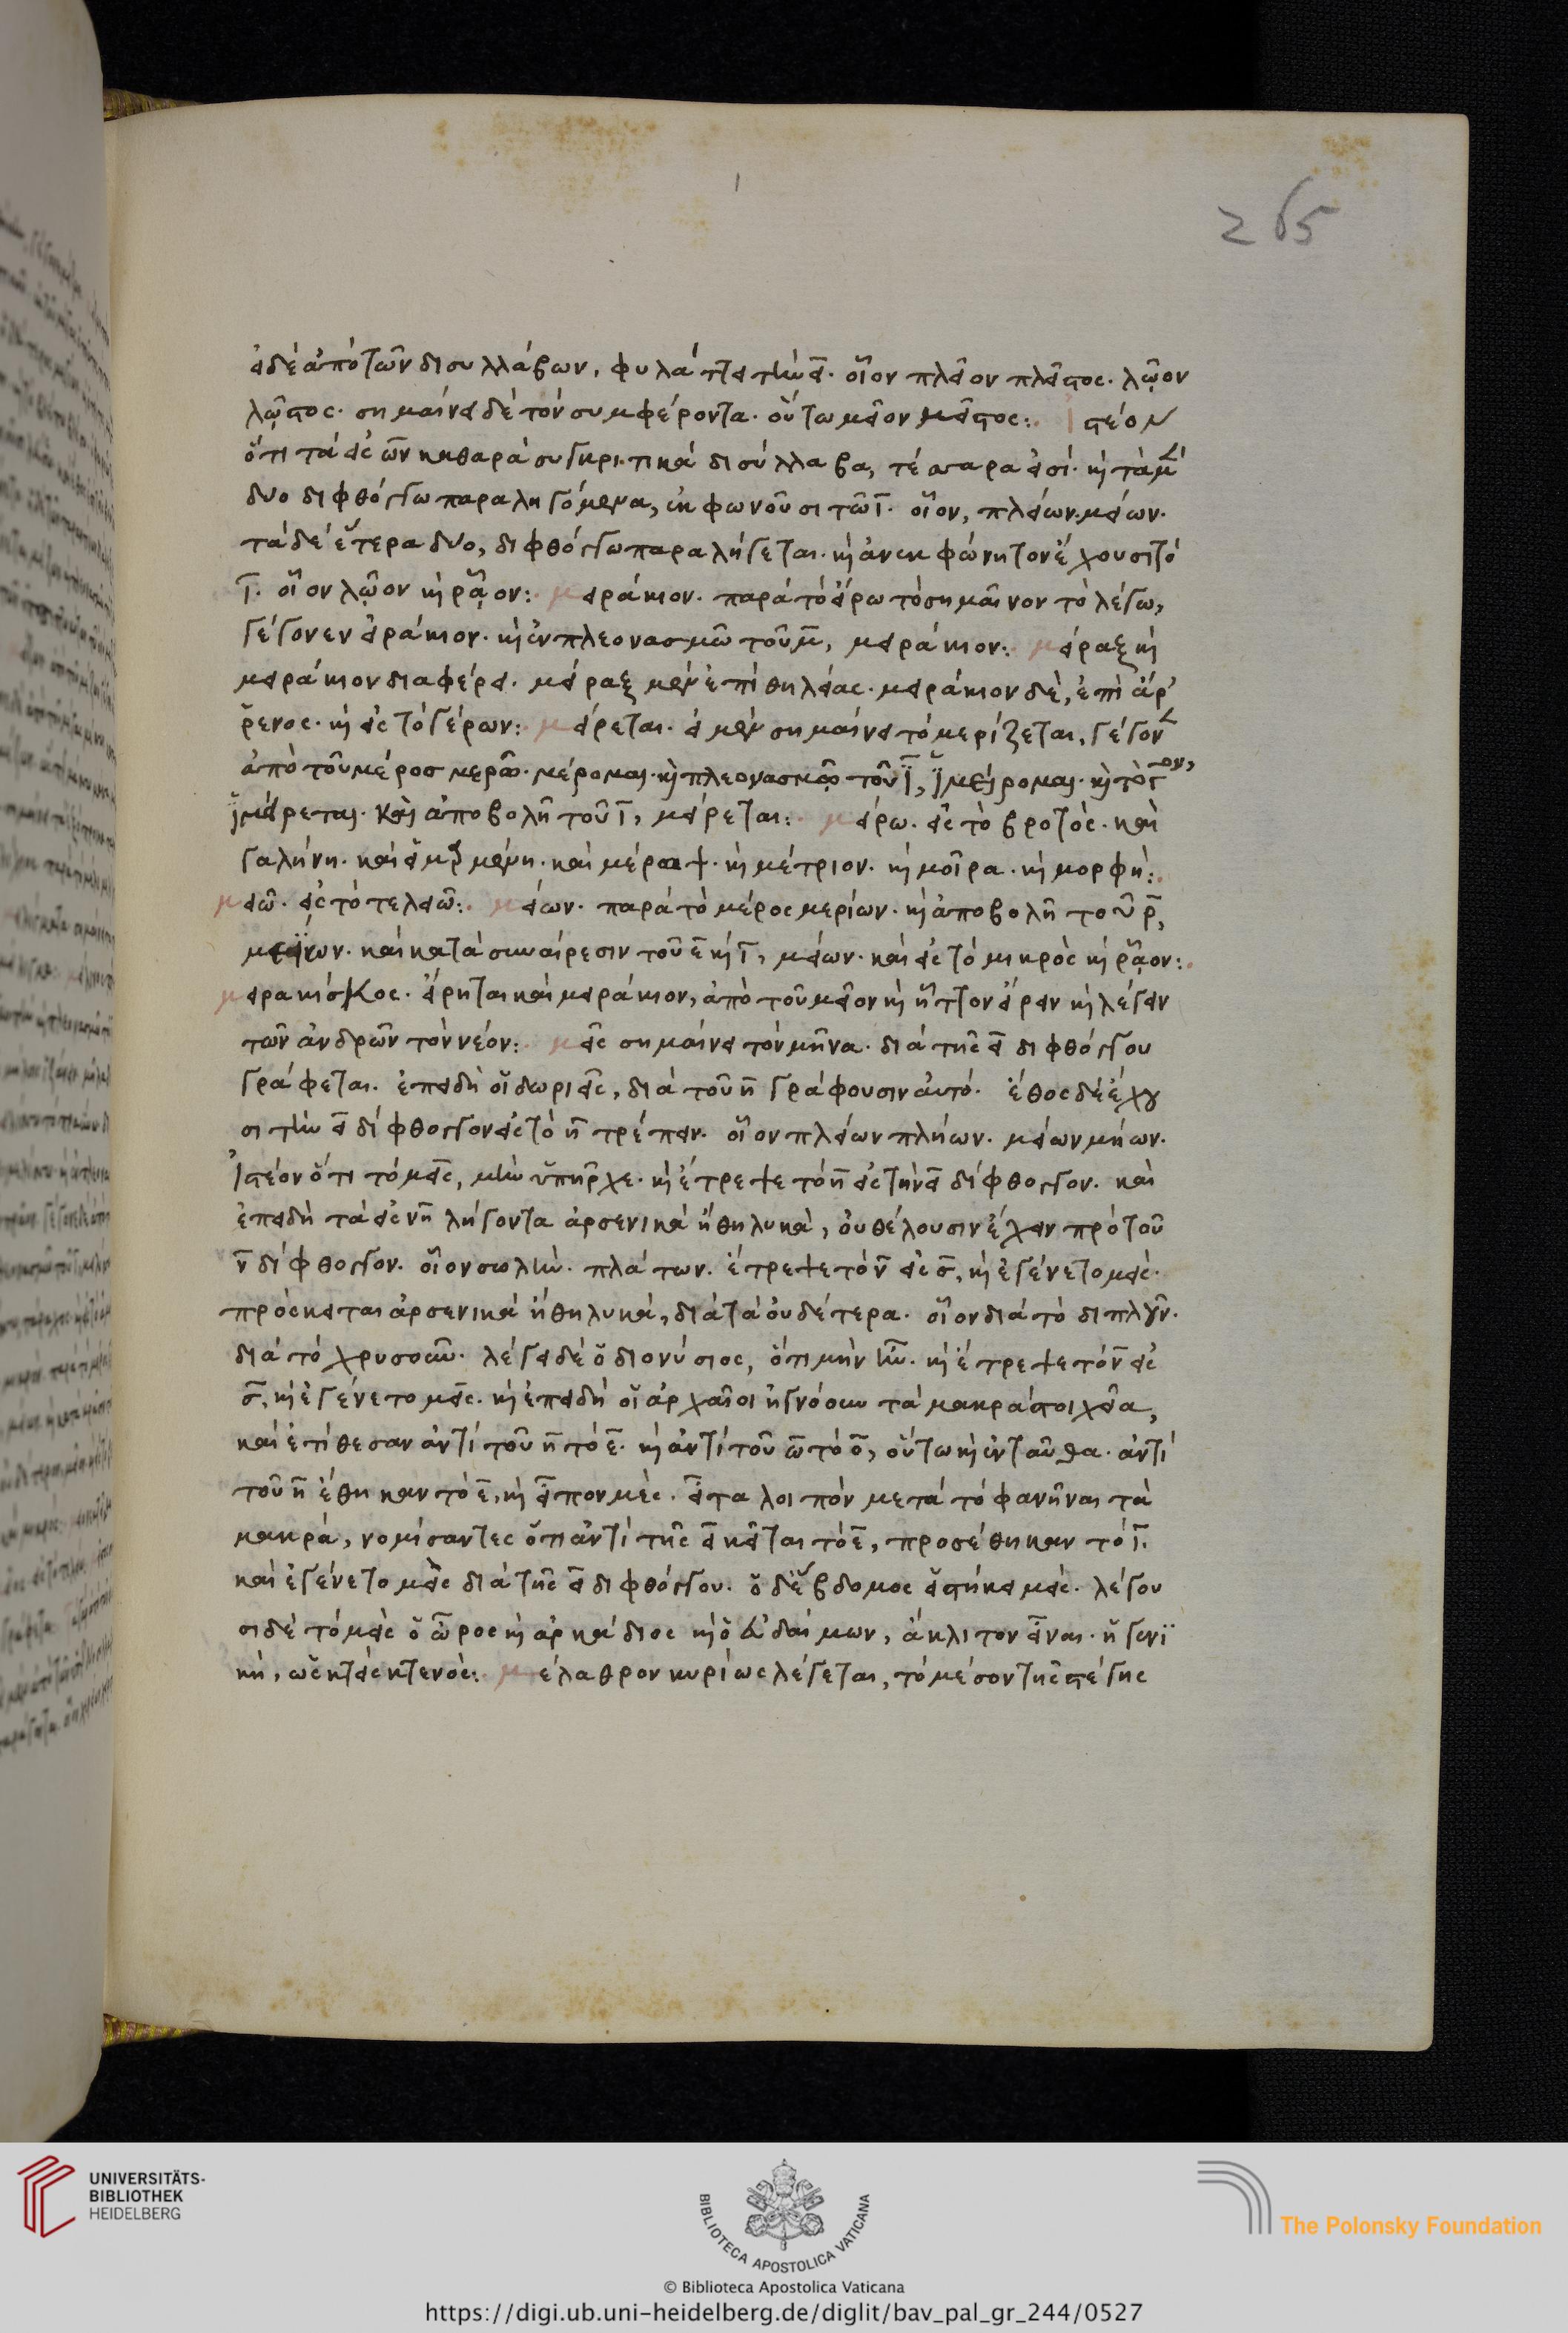 265
εἰ δὲ ἀπὸ τῶν δισυλλάβων, φυλάττει τὴν ει. οἷον πλεῖον πλεῖστος. λῷον
λῷστος. σημαίνει δὲ τὸν συμφέροντα. οὕτω μεῖον μεῖστος: ἰστέον
ὅτι τὰ εἰς ων καθαρὰ συγκριτικὰ δισύλλαβα, τέσσαρα εἰσί. καὶ τὰ μὲν
δύο διφθόγγω παραληγόμενα, ἐκφωνοῦσι τῶ ι. οἷον, πλείων. μείων.
τὰ δὲ ἕτερα δύο, διφθόγγω παραλήγεται. καὶ ἀνεκφώνητον ἔχουσι τὸ
ι. οἷον λῷον καὶ ρᾷον: μειράκιον. παρὰ τὸ εἴρω τὸ σημαῖνον τὸ λέγω,
γέγονεν εἰράκιον. καὶ ἐν πλεονασμῶ τοῦ μ, μειράκιον: μεῖραξ καὶ
μειράκιον διαφέρει. μεῖραξ μὲν ἐπὶ θηλείας. μειράκιον δὲ, ἐπὶ ἄρ
ρενος. καὶ εἰς τὸ γέρων: μείρεται. εἰ μὲν σημαίνει τὸ μερίζεται, γέγον
ἀπὸ τοῦ μέρος μερῶ. μέρομαι. καὶ πλεονασμῶ τοῦ ι, ἱμείρομαι. καὶ τὸ γον,
ἱμείρεται. καὶ ἀποβολῆ τοῦ ι, μείρεται: μείρω. εἰς τὸ βροτός. καὶ
γαλήνη. καὶ εἱμαρμένη. καὶ μέροψ. καὶ μέτριον. καὶ μοῖρα. καὶ μορφή:
μειῶ. εἰς τὸ τελειῶ: μείων. παρὰ τὸ μέρος μερίων. καὶ ἀποβολῆ τοῦ ρ,
μεΐων. καὶ κατὰ συναίρεσιν τοῦ ε καὶ ι, μείων. καὶ εἰς τὸ μικρὸς καὶ ρᾷον:
μειρακίσκος. εἴρηται καὶ μειράκιον, ἀπὸ τοῦ μεῖον καὶ ἧττον εἴρειν καὶ λέγειν
τῶν ἀνδρῶν τὸν νέον: μεὶς σημαίνει τὸν μῆνα. διὰ τῆς ει διφθόγγου
γράφεται. ἐπειδὴ οἱ δωριεῖς, διὰ τοῦ η γράφουσιν αὐτό. ἔθος δὲ ἔχου
σι τὴν ει δίφθογγον εἰς τὸ η τρέπειν. οἷον πλείων πλήων. μείων μήων.
Ἰστέον ὅτι τὸ μεῖς, μὴν ὑπῆρχε. καὶ ἔτρεψε τὸ η εἰς τὴν ει δίφθογγον. καὶ
ἐπειδὴ τὰ εἰς ν λήγοντα ἀρσενικὰ ἢ θηλυκὰ, οὐ θέλουσιν ἔχειν πρὸ τοῦ
ν δίφθογγον. οἷον σωλήν. πλάτων. ἔτρεψε τὸ ν εἰς σ, καὶ ἐγένετο μείς.
πρόσκειται ἀρσενικὰ ἢ θηλυκά, διὰ τὰ οὐδέτερα. οἷον διὰ τὸ διπλοῦν.
διὰ τὸ χρυσοῦν. λέγει δὲ ὁ διονύσιος, ὅτι μὴν ἦν. καὶ ἔτρεψε τὸ ν εἰς
σ, καὶ ἐγένετο μεῖς. καὶ ἐπειδὴ οἱ ἀρχαῖοι ἠγνόουν τὰ μακρὰ στοιχεῖα,
καὶ ἐτίθεσαν ἀντὶ τοῦ η τὸ ε. καὶ ἀντὶ τοῦ ω τὸ ο, οὕτω καὶ ἐνταῦθα. ἀντὶ
τοῦ η ἔθηκαν τὸ ε, καὶ εἶπον μές. εἶτα λοιπὸν μετὰ τὸ φανῆναι τὰ
μακρὰ, νομίσαντες ὅτι ἀντὶ τῆς ει κεῖται τὸ ε, προσέθηκαν τὸ ι.
καὶ ἐγένετο μεὶς διὰ τῆς ει διφθόγγου. ὁ δὲ ἕβδομος εἱστήκει μείς. λέγου
σι δὲ τὸ μεὶς ὁ ὦρος καὶ ἀρκάδιος καὶ ὁ εὐδαίμων, ἄκλιτον εἶναι. ἡ γενι
κὴ, ὡς κτεὶς κτενός: μέλαθρον κυρίως λέγεται, τὸ μέσον τῆς στέγης
UNIVERSITÄTS-
BIBLIOTHEK
HEIDELBERG
BIBLIOTECA APOSTOLICA VATICANA
The Polonsky Foundation
© Biblioteca Apostolica Vaticana
https://digi.ub.uni-heidelberg.de/diglit/bav_pal_gr_244/0527